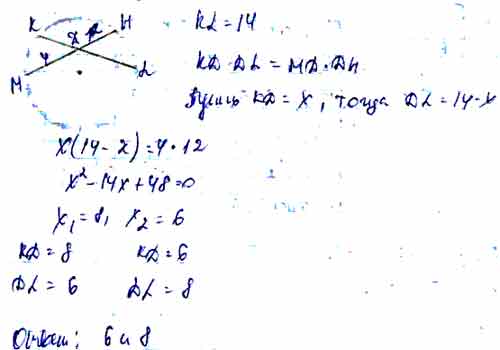 K H
D
4
M L
KL = 14
KD · DL = MD · DH
Пусть KD = x, тогда DL = 14 - x
x(14 - x) = 4 · 12
x² - 14x + 48 = 0
x₁ = 8, x₂ = 6
KD = 8 KD = 6
DL = 6 DL = 8
Ответ: 6 и 8